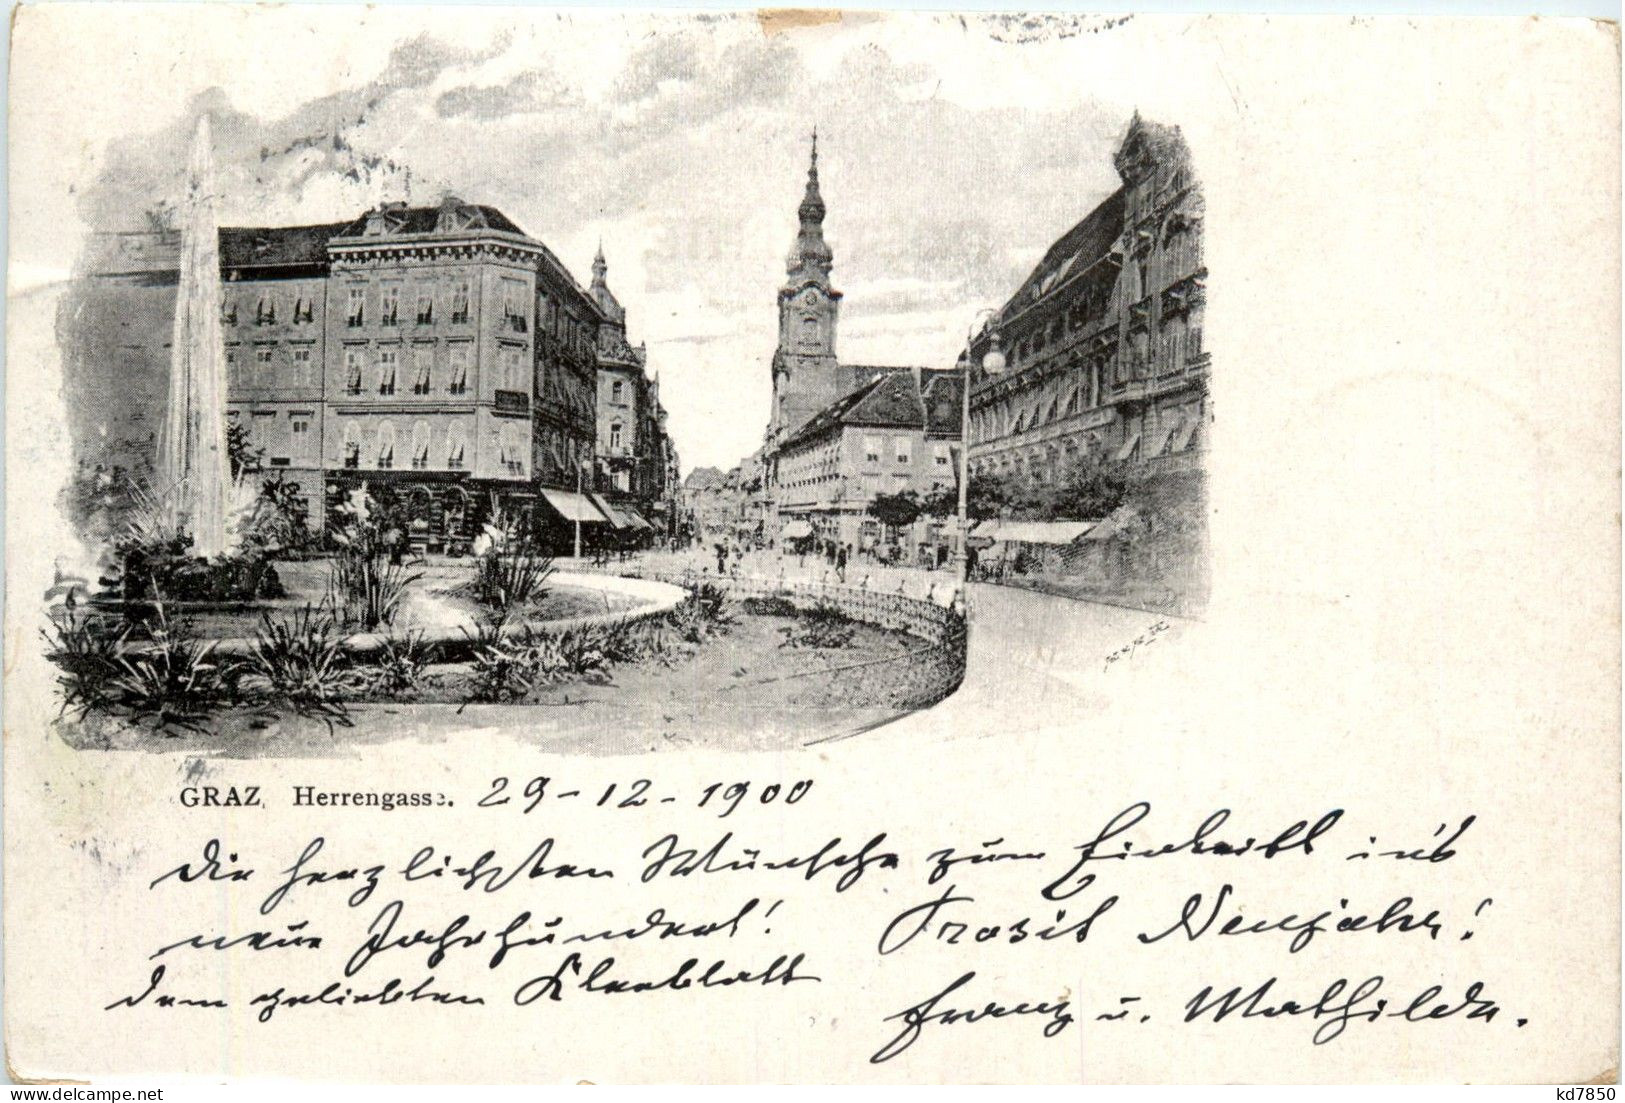 GRAZ, Herrengasse. 29-12-1900
Die herzlichsten Wünsche zum Eintritt in's
neue Jahrhundert! Prosit Neujahr!
dem geliebten Kleeblatt
Franz u. Mathilde.
kd7850